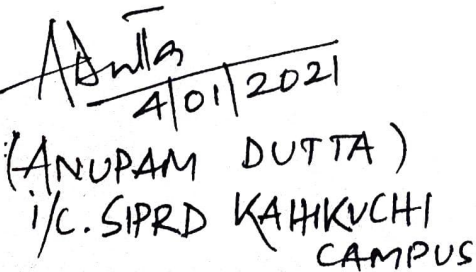 ADutta
4/01/2021
(ANUPAM DUTTA)
i/c. SIPRD KAHIKUCHI
CAMPUS